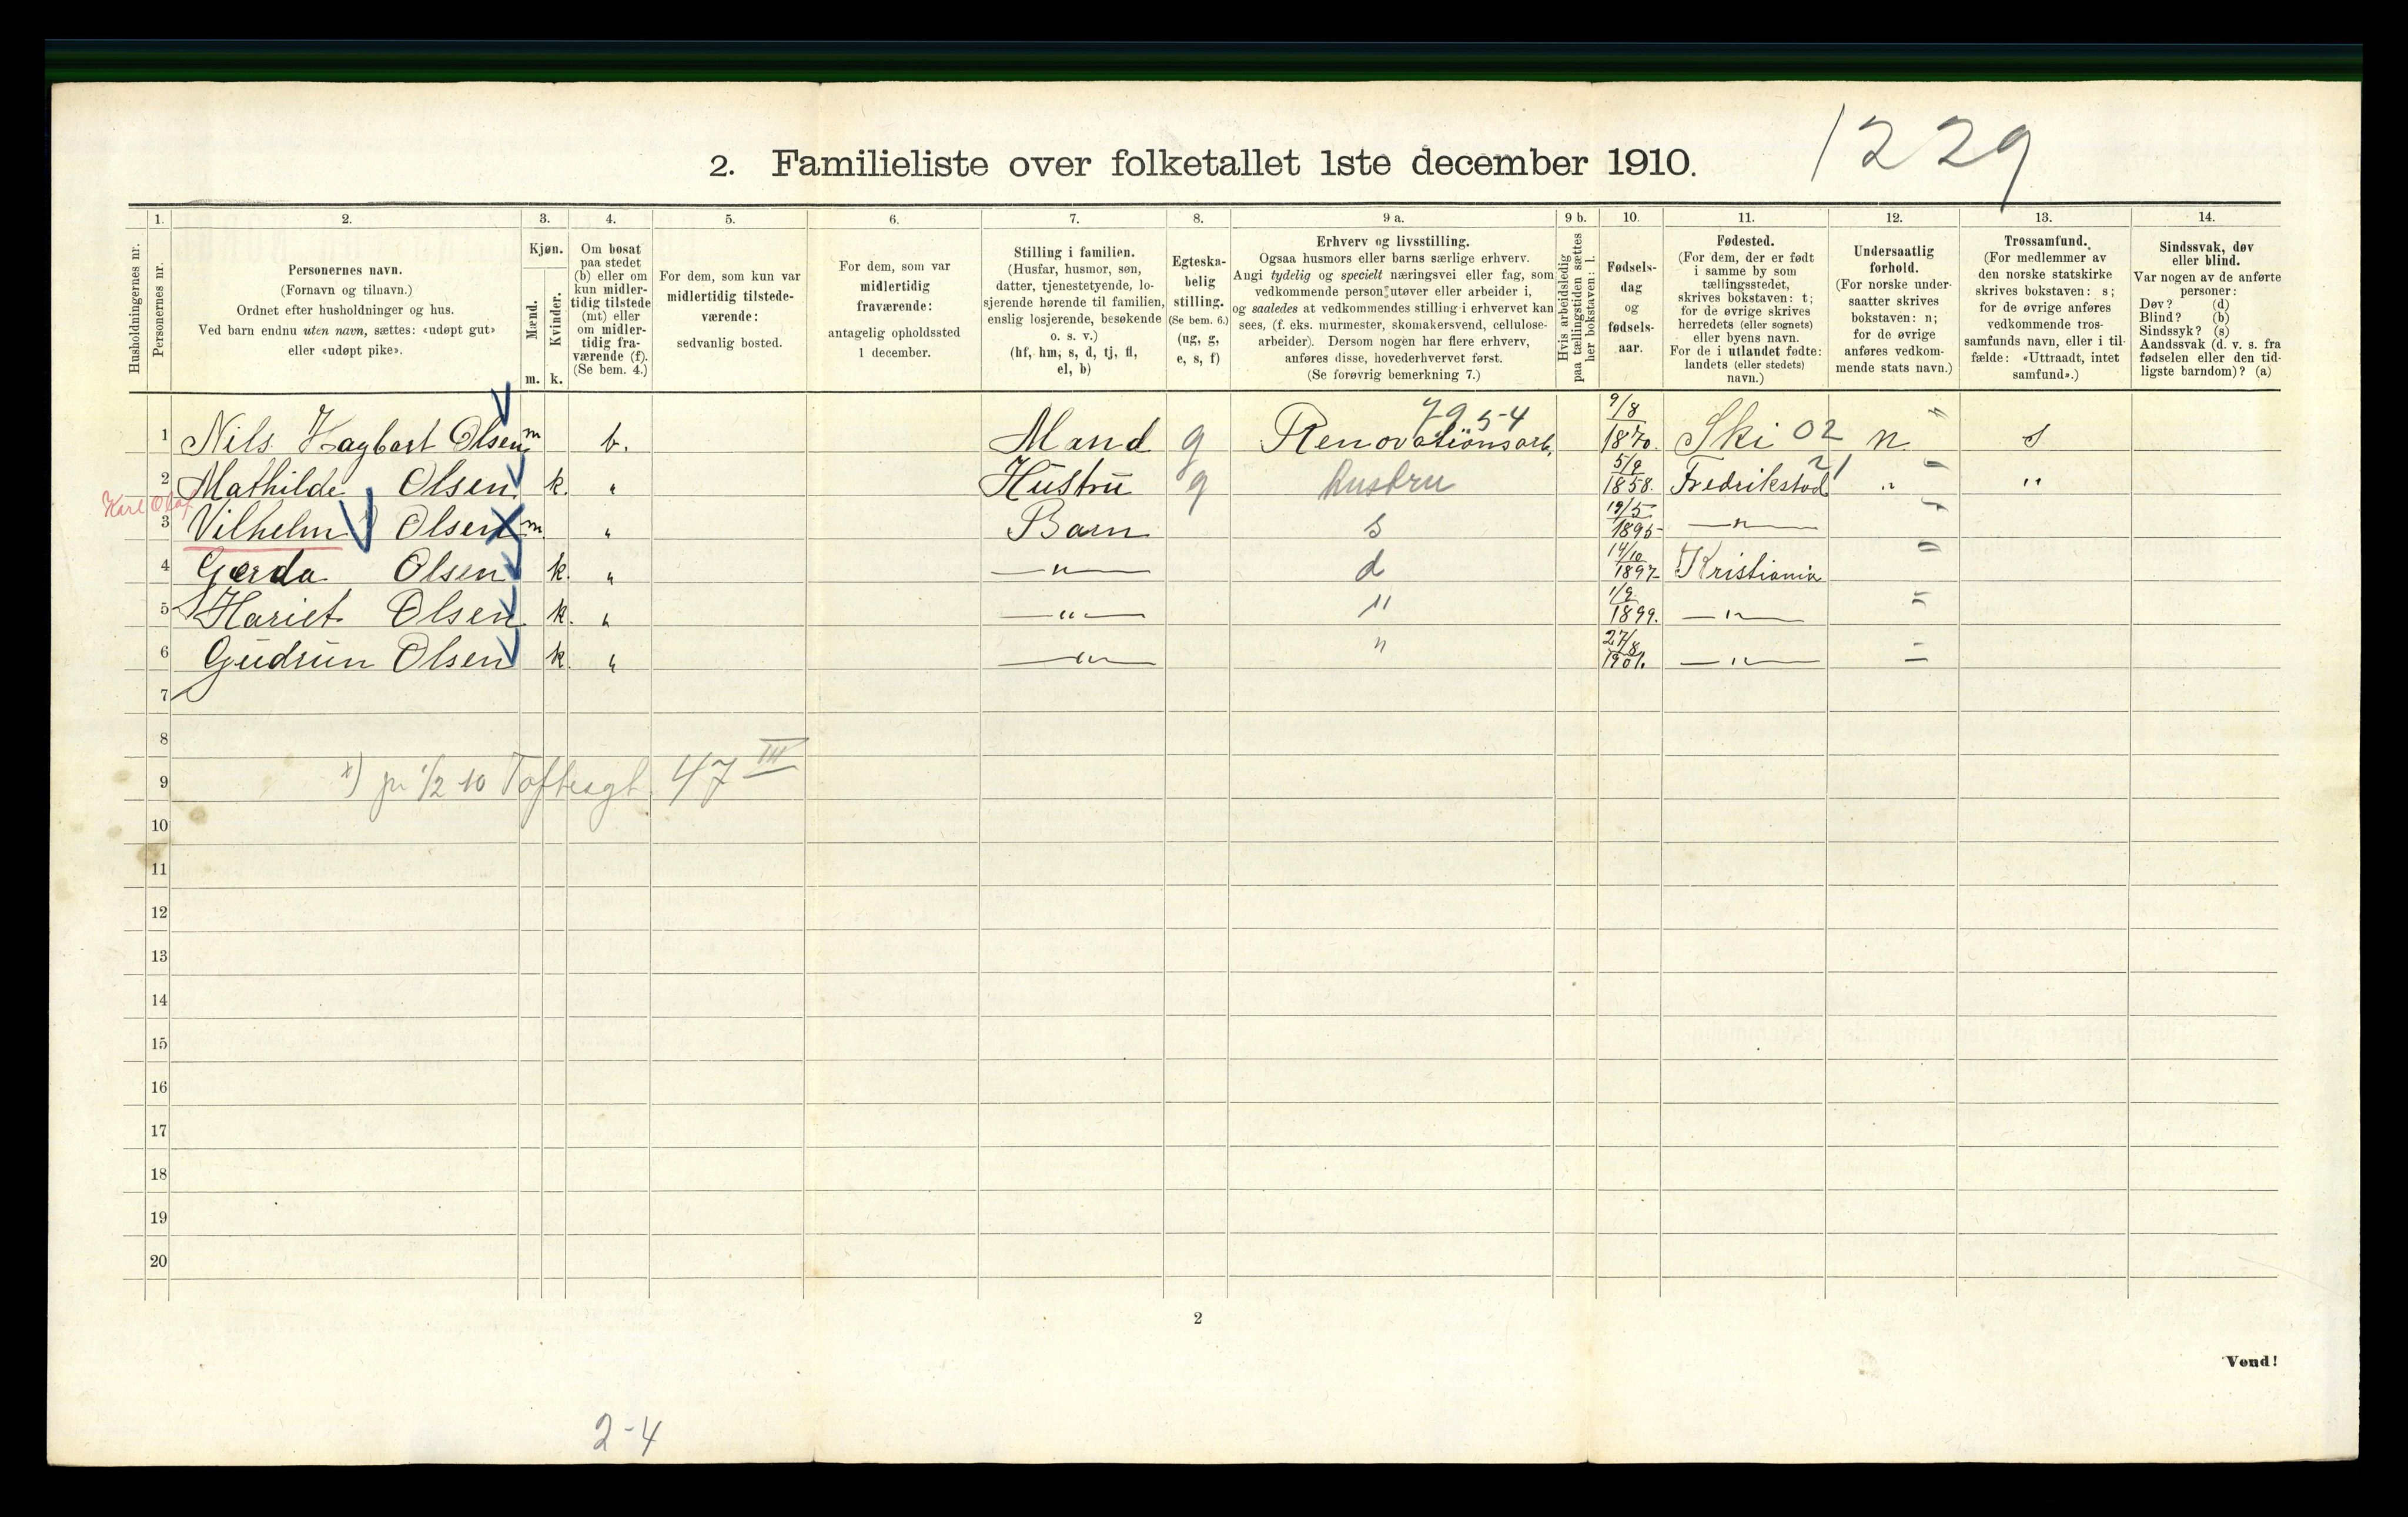 1229
2. Familieliste over folketallet 1ste december 1910.
1. 2. 3. 4. 5. 6. 7. 8. 9 a. 9 b. 10. 11. 12. 13. 14.
Husholdningernes nr.
Personernes nr.
Personernes navn.
(Fornavn og tilnavn.)
Ordnet efter husholdninger og hus.
Ved barn endnu uten navn, sættes: «udøpt gut»
eller «udøpt pike».
Kjøn.
Mænd.
Kvinder.
m. k.
Om bosat
paa stedet
(b) eller om
kun midler-
tidig tilstede
(mt) eller
om midler-
tidig fra-
værende (f).
(Se bem. 4.)
For dem, som kun var
midlertidig tilstede-
værende:
sedvanlig bosted.
For dem, som var
midlertidig
fraværende:
antagelig opholdssted
1 december.
Stilling i familien.
(Husfar, husmor, søn,
datter, tjenestetyende, lo-
sjerende hørende til familien,
enslig losjerende, besøkende
o. s. v.)
(hf, hm, s, d, tj, fl,
el, b)
Egteska-
belig
stilling.
(Se bem. 6.)
(ug, g,
e, s, f)
Erhverv og livsstilling.
Ogsaa husmors eller barns særlige erhverv.
Angi tydelig og specielt næringsvei eller fag, som
vedkommende person utøver eller arbeider i,
og saaledes at vedkommendes stilling i erhvervet kan
sees, (f. eks. murmester, skomakersvend, cellulose-
arbeider). Dersom nogen har flere erhverv,
anføres disse, hovederhvervet først.
(Se forøvrig bemerkning 7.)
Hvis arbeidsledig
paa tællingstiden sættes
her bokstaven: l.
Fødsels-
dag
og
fødsels-
aar.
Fødested.
(For dem, der er født
i samme by som
tællingsstedet,
skrives bokstaven: t;
for de øvrige skrives
herredets (eller sognets)
eller byens navn.
For de i utlandet fødte:
landets (eller stedets)
navn.)
Undersaatlig
forhold.
(For norske under-
saatter skrives
bokstaven: n;
for de øvrige
anføres vedkom-
mende stats navn.)
Trossamfund.
(For medlemmer av
den norske statskirke
skrives bokstaven: s;
for de øvrige anføres
vedkommende tros-
samfunds navn, eller i til-
fælde: «Uttraadt, intet
samfund».)
Sindssvak, døv
eller blind.
Var nogen av de anførte
personer:
Døv? (d)
Blind? (b)
Sindssyk? (s)
Aandssvak (d. v. s. fra
fødselen eller den tid-
ligste barndom)? (a)
7954
1 Nils Hagbart Olsen m b. Mand g Renovationsarb. 9/8 1870. Ski 02 n s
2 Mathilde Olsen k. " Hustru g hustru 5/9 1858. Fredrikstad 21 " "
Karl Olaf
3 Vilhelm Olsen m " Barn s 19/5 1895 — " —
4 Gerda Olsen k. " — " — d 14/10 1897 Kristiania
5 Hariet Olsen k. " — " — " 1/9 1899. — " —
6 Gudrun Olsen k. " — " — " 27/8 1901. — " —
7
8
9 x) pr 1/2 10 Toftesgt. 47 III
10
11
12
13
14
15
16
17
18
19
20
2
Vend!
2-4